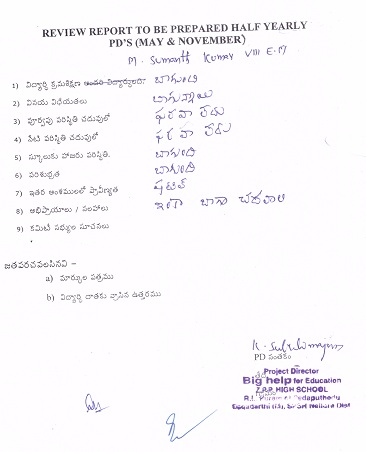 REVIEW REPORT TO BE PREPARED HALF YEARLY
PD'S (MAY & NOVEMBER)
M. Sumanth Kumar VIII E.M
1) విద్యార్థి క్రమశిక్షణ బాగుంది
2) వినయ విధేయతలు బాగున్నాయి
3) పూర్వపు పరిస్థితి చదువులో ఫరవా లేదు
4) నేటి పరిస్థితి చదువులో ఫరవా లేదు
5) స్కూలుకు హాజరు పరిస్థితి. బాగుంది
6) పరిశుభ్రత బాగుంది
7) ఇతర అంశములలో ప్రావీణ్యత షటిల్
8) అభిప్రాయాలు / సలహాలు ఇంకా బాగా చదవాలి
9) కమిటీ సభ్యుల సూచనలు
జతపరచవలసినవి –
a) మార్కుల పత్రము
b) విద్యార్థి దాతకు వ్రాసిన ఉత్తరము
PD సంతకం
Project Director
Big help for Education
Z.P.P. HIGH SCHOOL